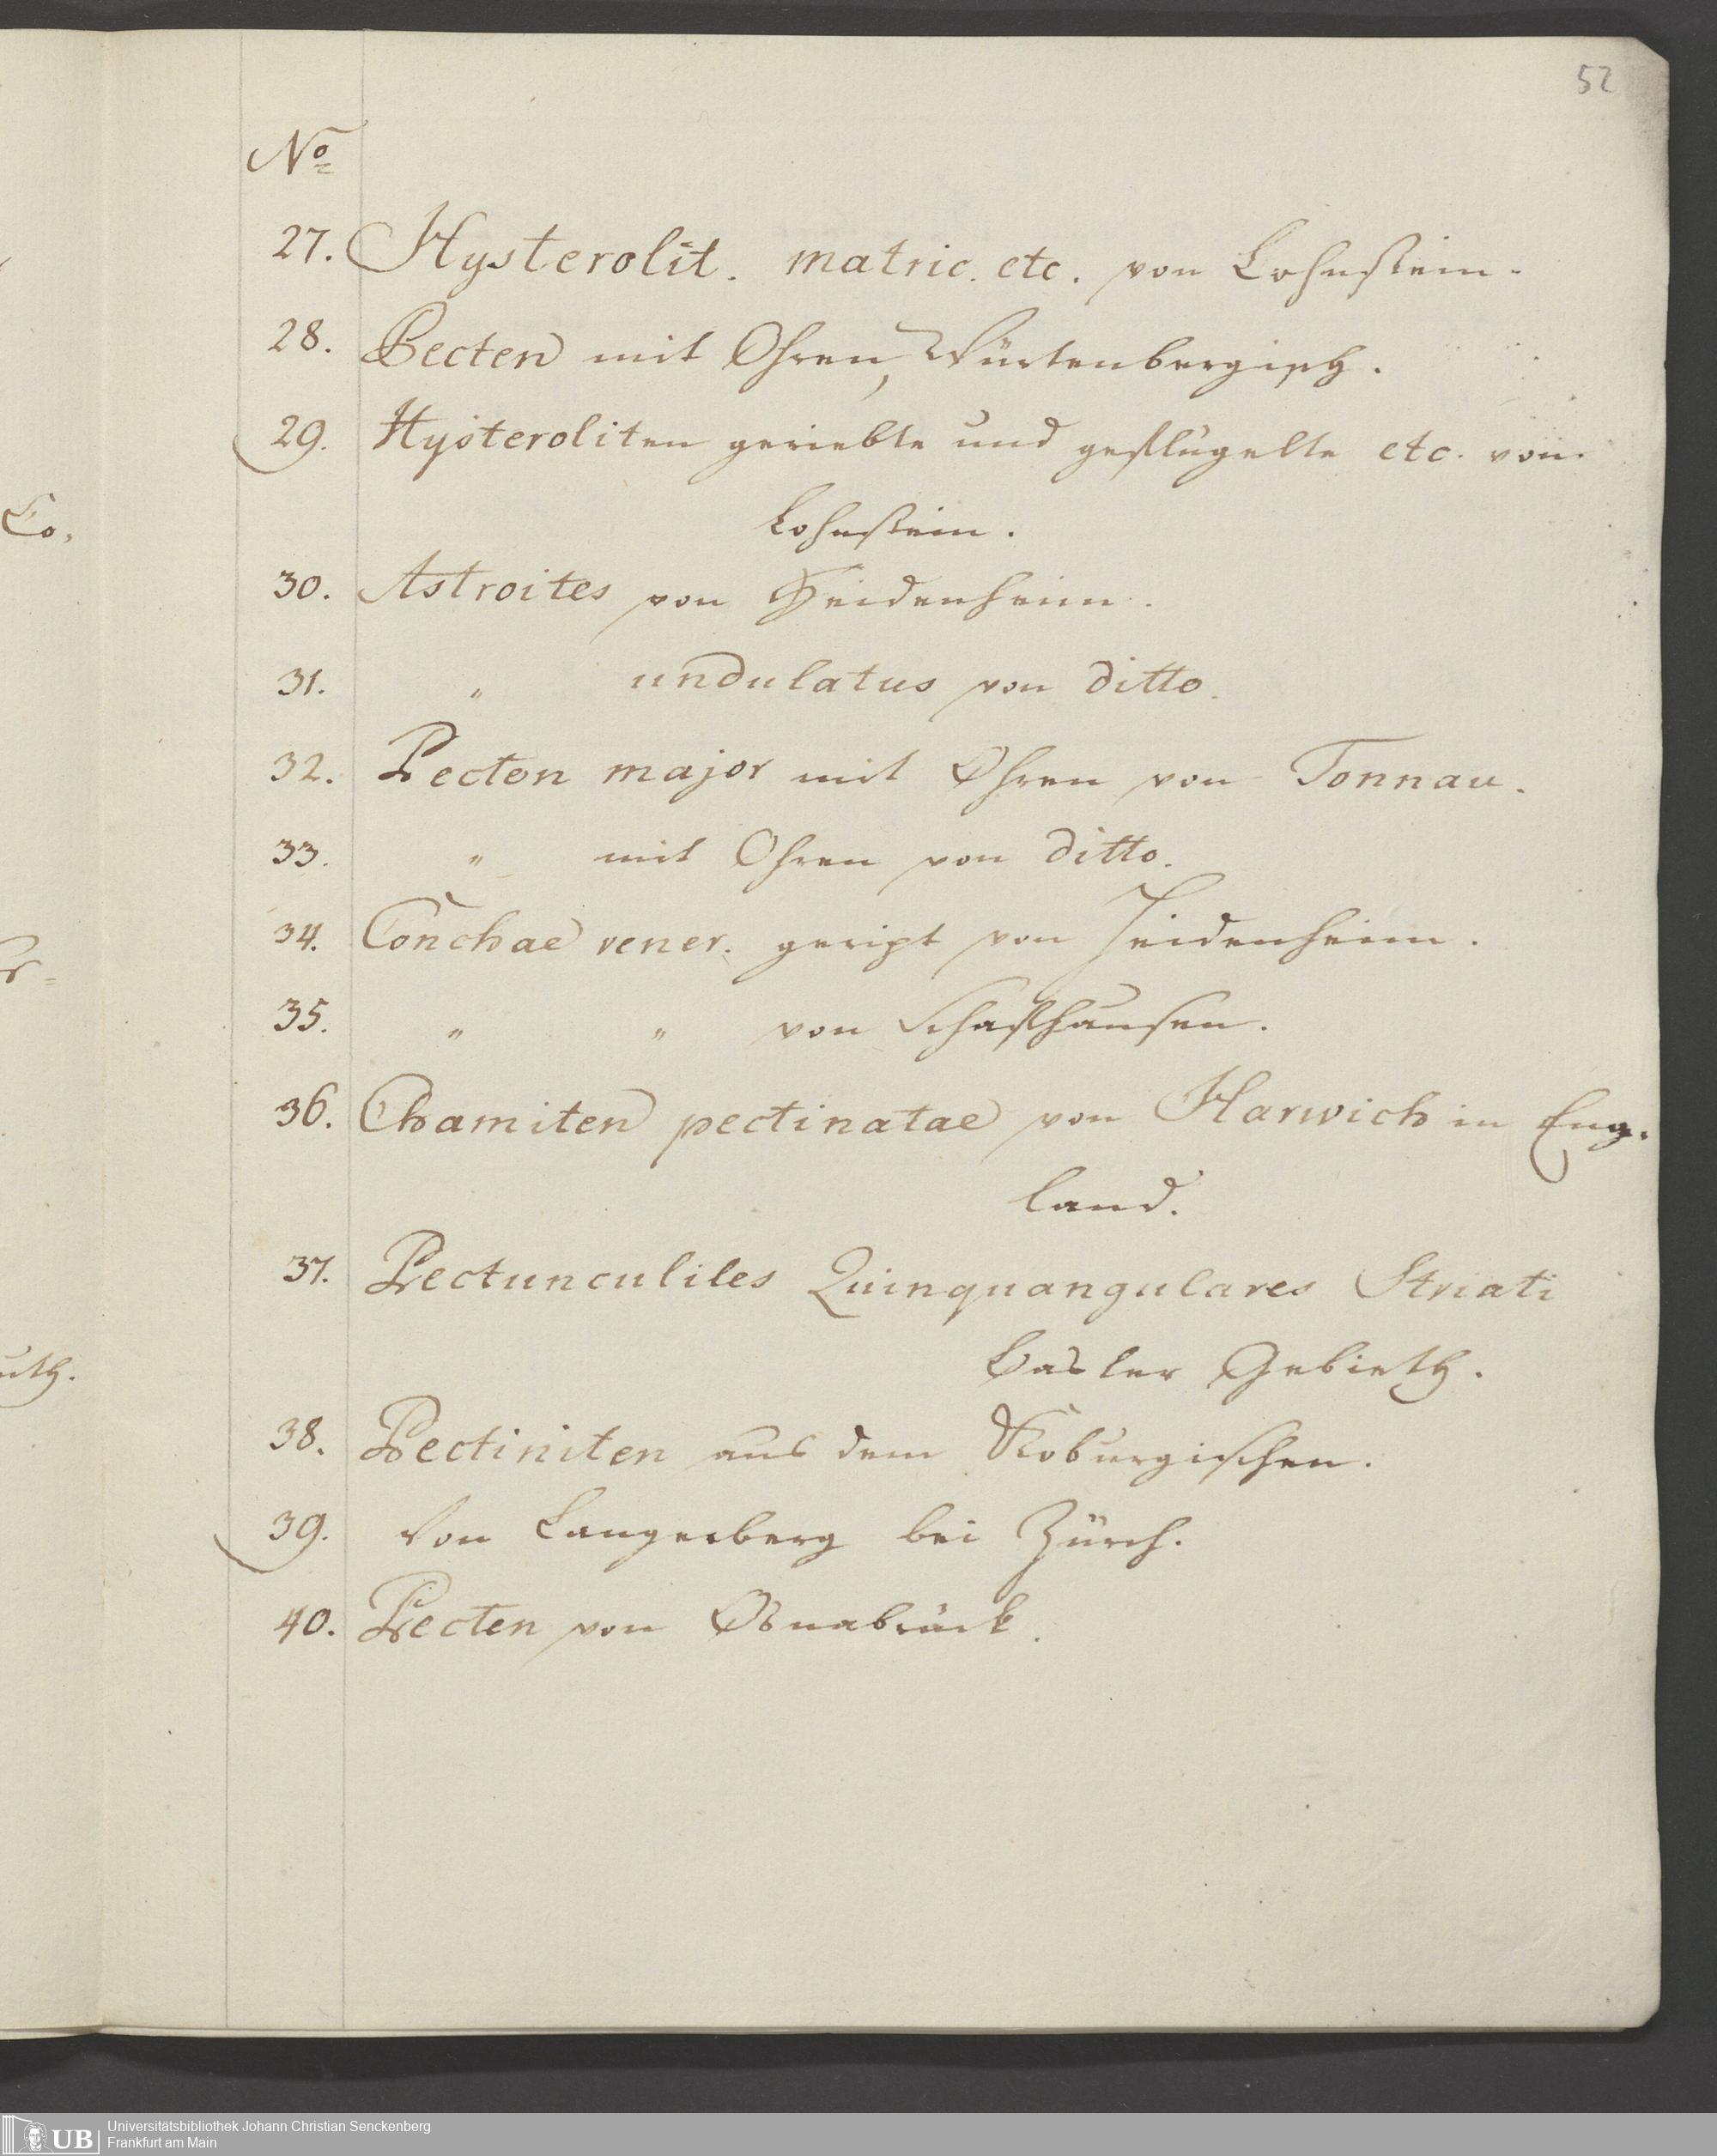 52
No
27. Hysterolit. matric. etc. von Lohnstein.
28. Pecten mit Ohren, Würtenbergisch.
29. Hysteroliten geriebte und geflügelte etc. von
Lohnstein.
30. Astroites von Heidenheim.
31. " undulatus von ditto.
32. Pecten major mit Ohren von Tonnau.
33. " mit Ohren von ditto.
34. Conchae vener. geript von Heidenheim.
35. " " von Schafhausen.
36. Chamiten pectinatae von Harwich in Eng-
land.
37. Pectunculites Quinquangulares Striati
Basler Gebieth.
38. Pectiniten aus dem Koburgischen.
39. Von Langerberg bei Zürch.
40. Pecten von Osnabrück.
Co.
r=
uth.
UB
Universitätsbibliothek Johann Christian Senckenberg
Frankfurt am Main